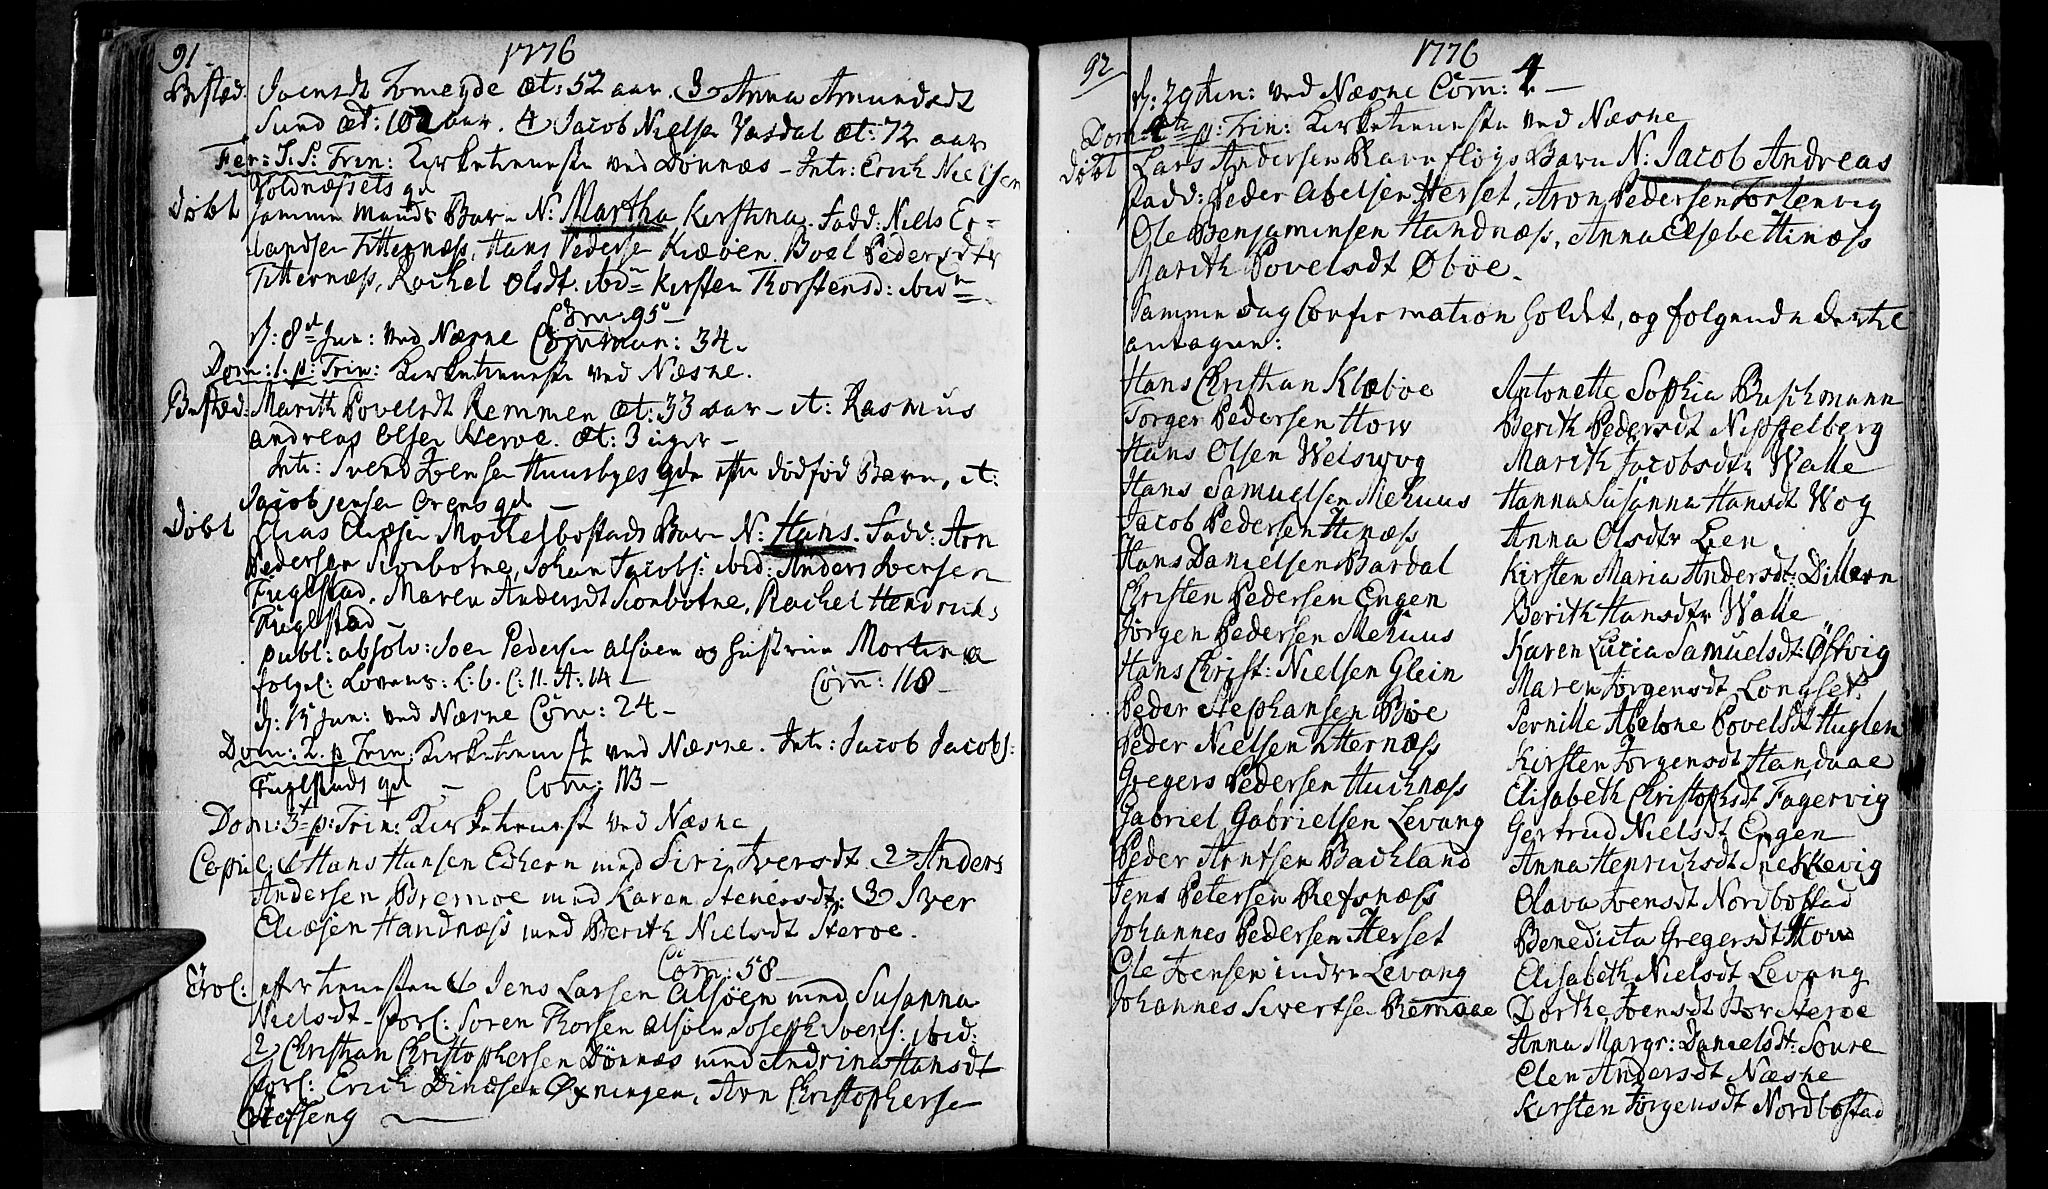 91
1776
Bested: Joensdt Tomeide æt: 52 aar. 3 Anna Amundsdt
Sund æt: 102 aar. 4 Jacob Nielsen Vasdal æt: 72 aar
Fer: I. S: Trin: Kirketieneste ved Dønnæs – Intr: Erich Nielsen
Koldnæssets qd
Døbt samme Mands Barn N: Martha Kirstina. Fadd: Niels Er-
landsen Titternæss, Hans Peders Kiæøen. Boel Pedersdtr
Titternæss, Rachel Olsdt. ibid Kirsten Thorstensd: ibid
Com: 95
d: 8 Jun: ved Næsne Commun: 34.
Dom: 1. p: Trin: Kirketieneste ved Næsne.
Bested: Marith Povelsdt Remmen æt: 33 aar – it: Rasmus
Andreas Olsen Herøe. æt: 3 uger –
Intr: Svend Joensen Huusbyes qde efter dødfød Barn, it:
Jacob Jensen Orens qd –
Døbt Elias Eliæsen Mochelbostads Barn N: Hans. Fadd: Arn
Pedersen Sionbotne, Johan Jacobs: ibid: Anders Iversen
Fuglstad. Maren Andersdt Sionbotne, Rachel Hendrichs
Fuglstad –
publ: absolv: Joen Pedersen Alsøen og Hustrue Mortina
følgel: Lovens: L: 6. C: 11. A: 14 – Com: 118 –
d: 15 Jun: ved Næsne Com: 24 –
Dom: 2. p Trin: Kirketieneste ved Næsne. Intr: Jacob Jacobs:
Fuglstads qd – Com: 113 –
Dom: 3 p: Trin: Kirketienest ved Næsne
Copul: 1 Hans Hansen Eshern med Siri Iversdt. 2 Anders
Andersen Bremoe med Karen Stenersdtr: 3 Iver
Eliæsen Handnæss med Berith Nielsdt Herøe.
Com: 58 –
Trol: efter tienesten 1 Jens Larsen Alsøen med Susanna
Nielsdt – forl: Søren Thorsen Alsøen Joseph Ivers: ibid:
2 Christian Christophersen Dønnæs med Andrina Hansdt
forl: Erich Dinesen Øxningen, Arn Christophersen
Stafseng
92
1776
d: 29 Jun: ved Næsne Com: 4 –
Dom 4 p: Trin: Kirketieneste ved Næsne
Døbt Lars Andersen Ravnfløgs Barn N: Jacob Andreas
Fadd: Peder Abelsen Herset, Aron Pedersen Fortenvig
Ole Benjaminsen Handnæss, Anna Elsebet Tinæss
Marith Povelsdt Øbøe.
Samme dag Confirmation holdet, og følgende dertil
antagne:
Hans Christian Klæboe
Torger Pedersen How
Hans Olsen Welswog
Hans Samuelsen Mehuus
Jacob Pedersen Tinæss
Hans Danielsen Bardal
Christen Pedersen Engen
Jørgen Pedersen Mehuus
Hans Christ: Nielsen Glein
Peder Stephansen Bøe
Peder Nielsen Titternæss
Gregers Pedersen Huchnæss
Gabriel Gabrielsen Levang
Peder Arntsen Backland
Jens Petersen Refsnæss
Johannes Pedersen Herset
Ole Joensen indre Levang
Johannes Sivertsen Remaae
Antonette Sophia Buschmann
Berith Pedersdt Nisstelberg
Marith Jacobsdtr Walle
Hanna Susanna Hansdt Wog
Anna Olsdtr Lien
Kirsten Maria Andersdt: Dillern
Berith Hansdtr Walle
Karen Lucia Samuelsdt: Østvig
Maren Jørgensdt Longset
Pernille Abelone Povelsdt Huglen
Kirsten Jørgensdt Handaae
Elisabeth Christophsdt Fagervig
Gertrud Nielsdt Engen
Anna Henrichsdt Snekkevig
Olava Joensdt Nordbostad
Benedicta Gregersdt How
Elisabeth Nielsdt Levang
Dorthe Joensdt Herøe
Anna Margr: Danielsdt: Soure
Elen Andersdt Næsne
Kirsten Jørgensdt Nordbostad